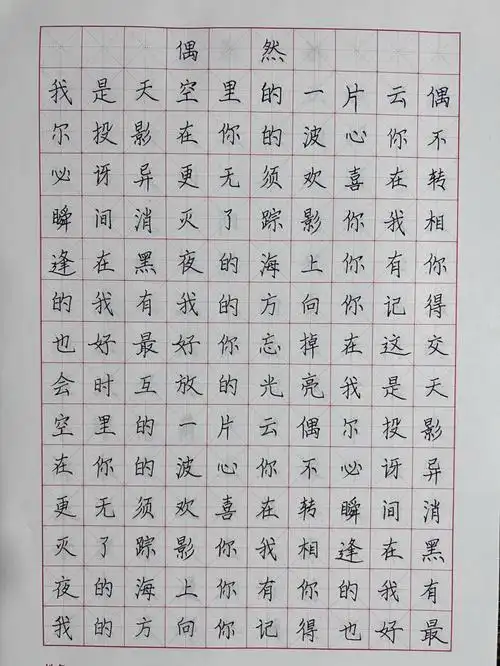 偶然
我是天空里的一片云偶
尔投影在你的波心你不
必讶异更无须欢喜在转
瞬间消灭了踪影你我相
逢在黑夜的海上你有你
的我有我的方向你记得
也好最好你忘掉在这交
会时互放的光亮我是天
空里的一片云偶尔投影
在你的波心你不必讶异
更无须欢喜在转瞬间消
灭了踪影你我相逢在黑
夜的海上你有你的我有
我的方向你记得也好最